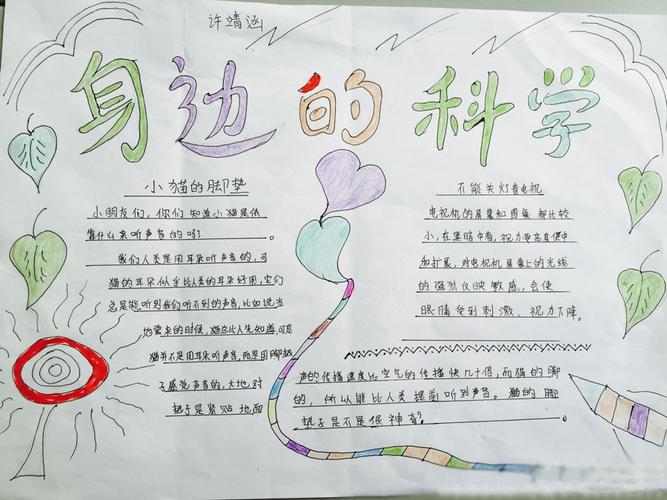 许靖涵
身边的科学
小猫的脚垫
小朋友们，你们知道小猫是依
靠什么来听声音的吗？
我们人类是用耳朵听声音的，可
猫的耳朵似乎比人类的耳朵好用，它们
总是能听到我们听不到的声音，比如说当
地震来的时候，猫总比人先知道，可是
猫并不是用耳朵听声音，而是用脚垫
子感觉声音的，大地，对
垫子是紧贴地面
不能关灯看电视
电视机的屏幕和图象都比较
小，在黑暗中看，视力
加扩展，对电视机屏幕上的光线
的强烈反映敏感，会使
眼睛受到刺激，视力下降。
声的传播速度比空气的传播快几十倍，而猫的脚
的，所以能比人类提前听到声音。猫的脚
垫子是不是很神奇？